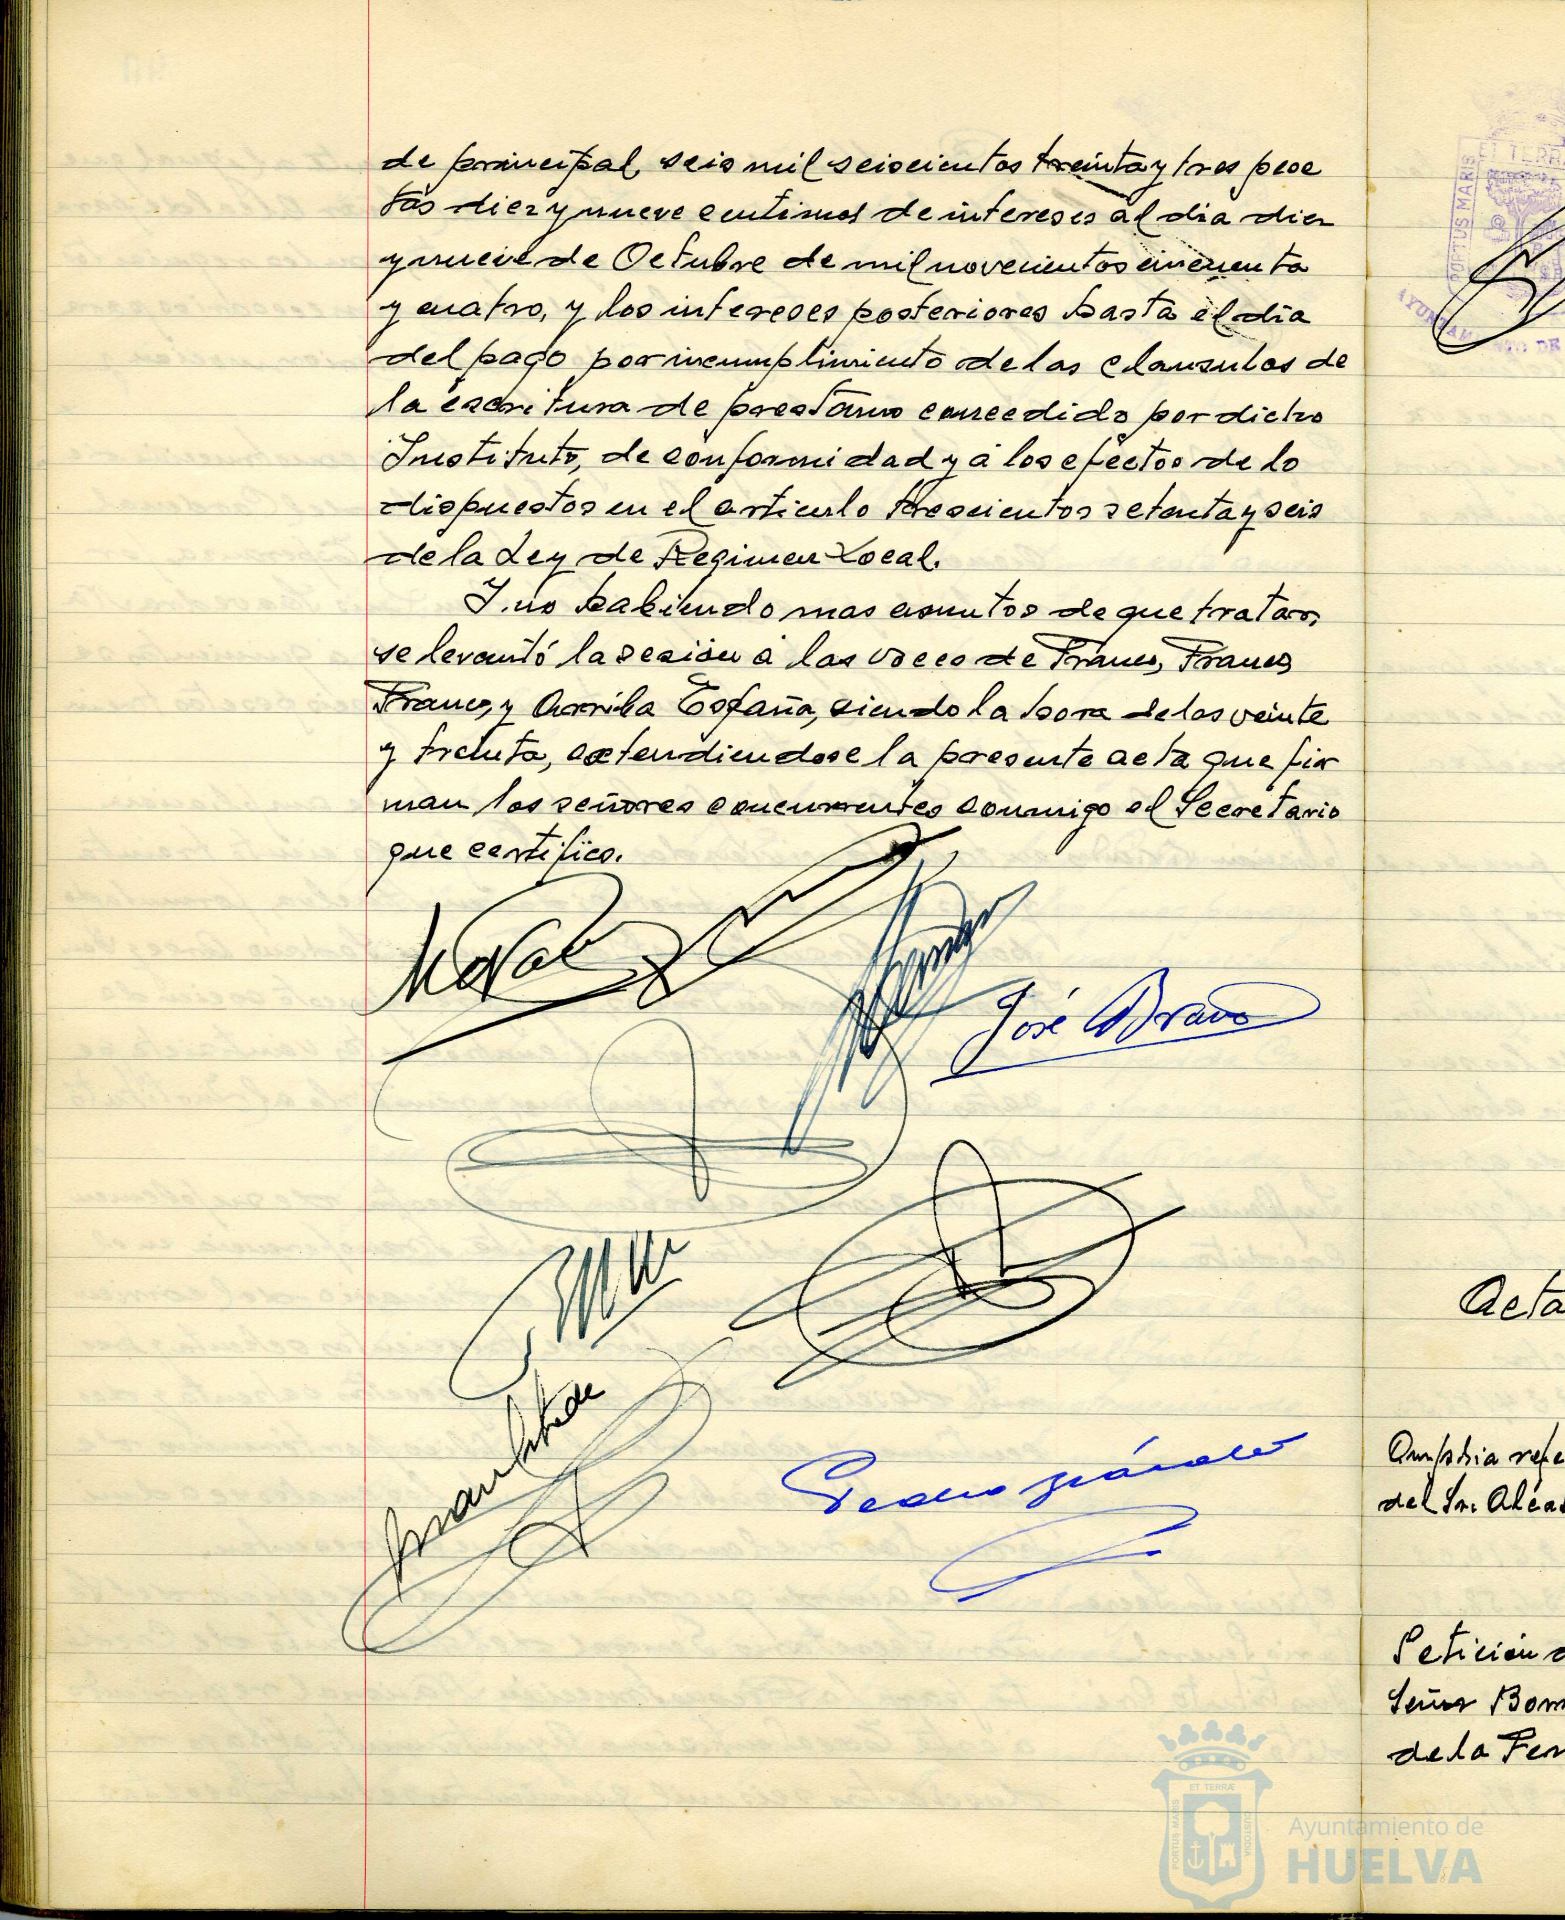 de principal, seis mil seiscientos treinta y tres pese
tas diez y nueve centimos de intereses al dia diez
y nueve de Octubre de mil novecientos cincuenta
y cuatro, y los intereses posteriores hasta el dia
del pago por incumplimiento de las clausulas de
la escritura de prestamo concedido por dicho
Instituto, de conformidad y a los efectos de lo
dispuestos en el articulo trescientos setenta y seis
de la Ley de Regimen Local.
Y no habiendo mas asuntos de que tratar,
se levantó la sesión a las voces de Franco, Franco,
Franco, y Arriba España, siendo la hora de las veinte
y treinta, extendiendose la presente acta que fir
man los señores concurrentes conmigo el Secretario
que certifico.
José Bravo
Acta
Amplia refe
del Sr. Alcal
Petición d
Señor Bom
de la Fer
ET TERR
PORTUS MARIS
ET TERRÆ
PORTUS MARIS
CUSTODIA
Ayuntamiento de
HUELVA